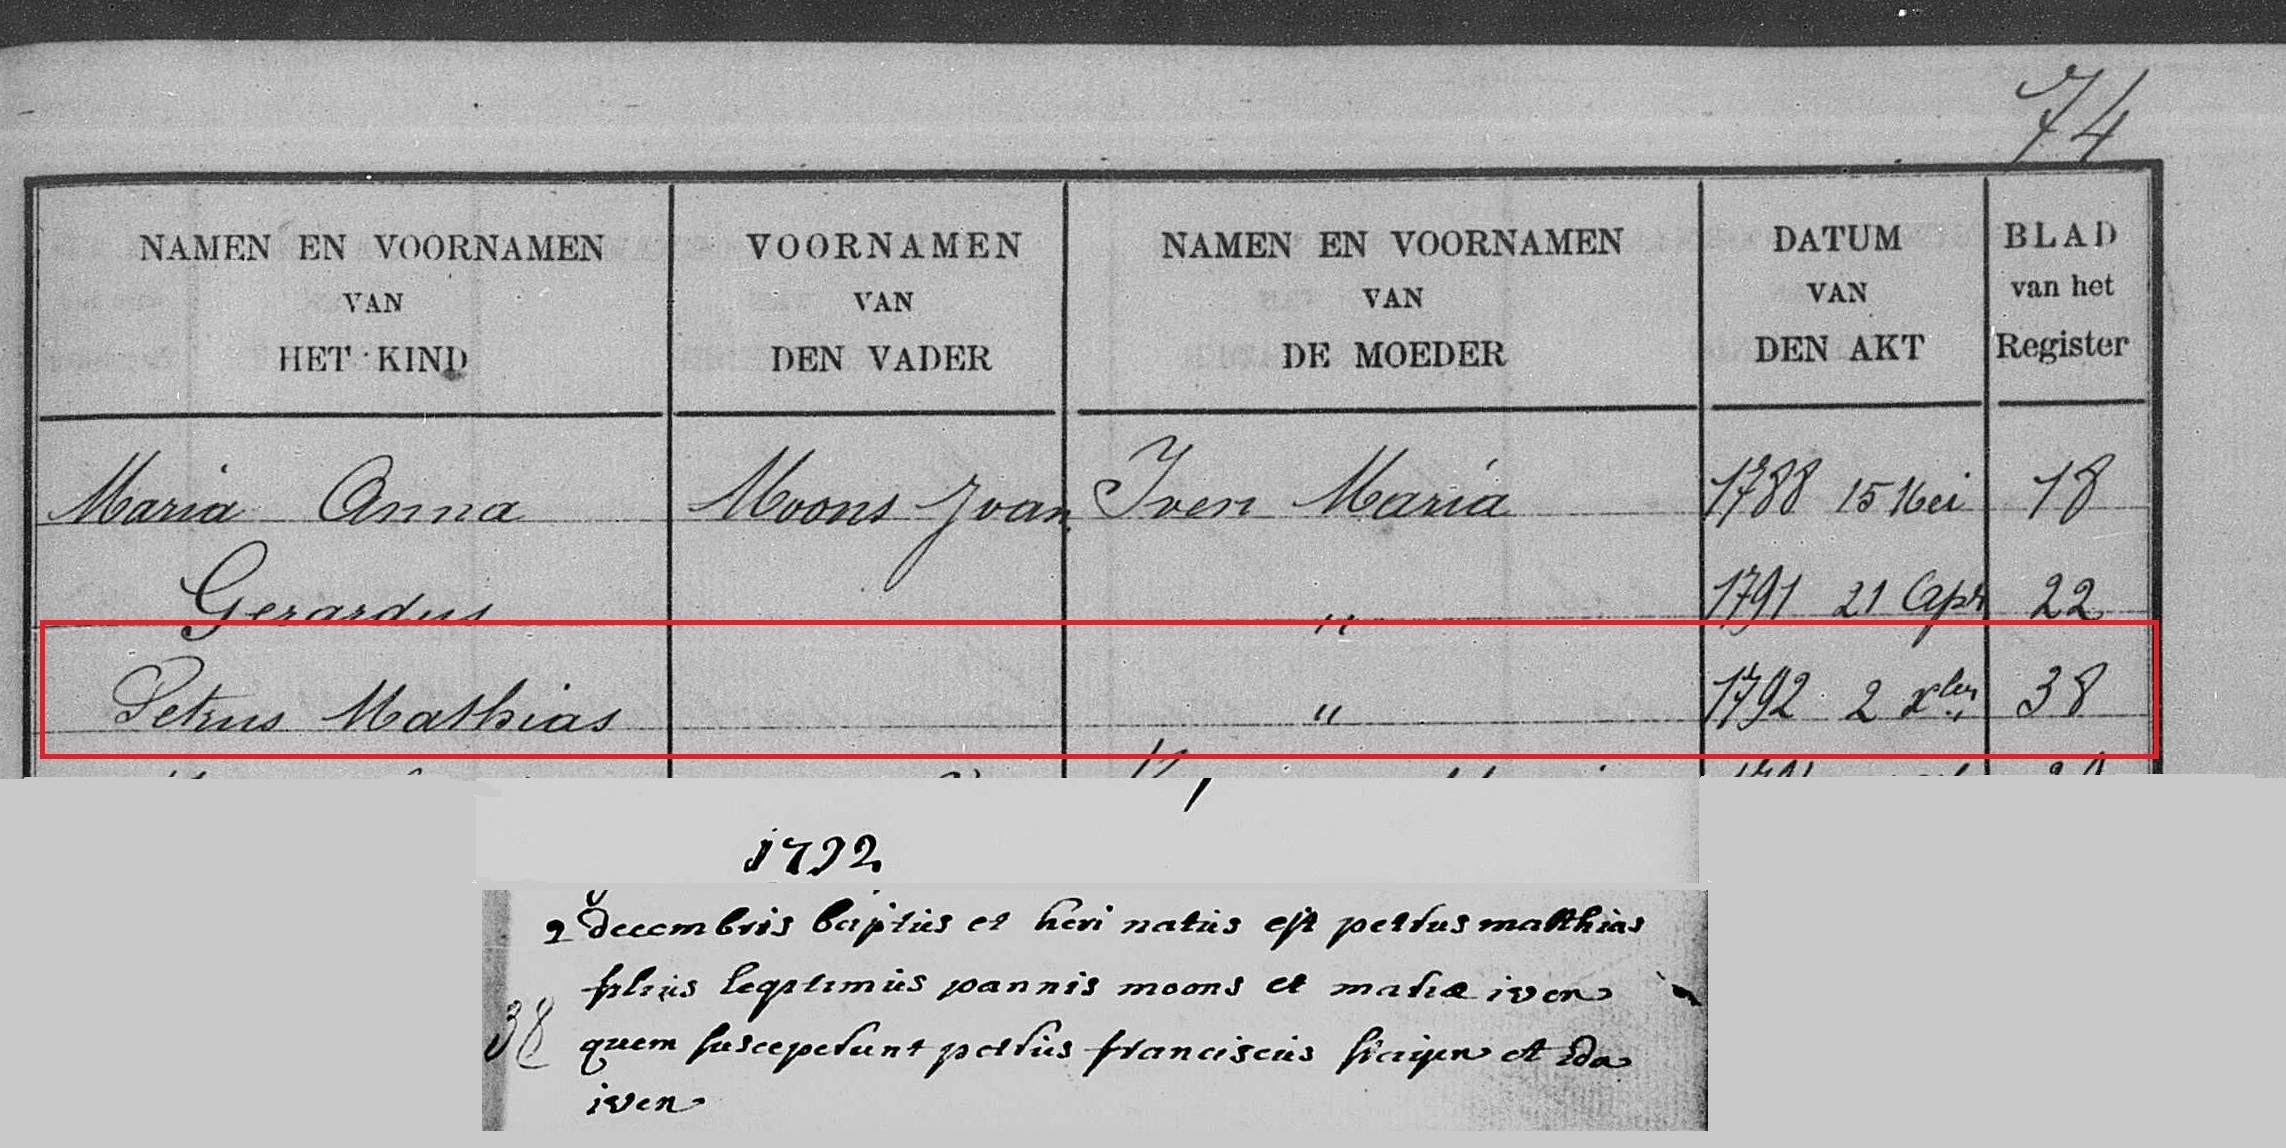 74
NAMEN EN VOORNAMEN VAN HET KIND
VOORNAMEN VAN DEN VADER
NAMEN EN VOORNAMEN VAN DE MOEDER
DATUM VAN DEN AKT
BLAD van het Register
Maria Anna Moons Joan Iven Maria 1788 15 Mei 18
Gerardus " 1791 21 Apr 22
Petrus Mathias " 1792 2 xber 38
1792
2 decembris baptus et heri natus est petrus matthias
filius legitimus joannis moons et mariæ iven
38
quem susceperunt petrus franciscus et Ida
iven